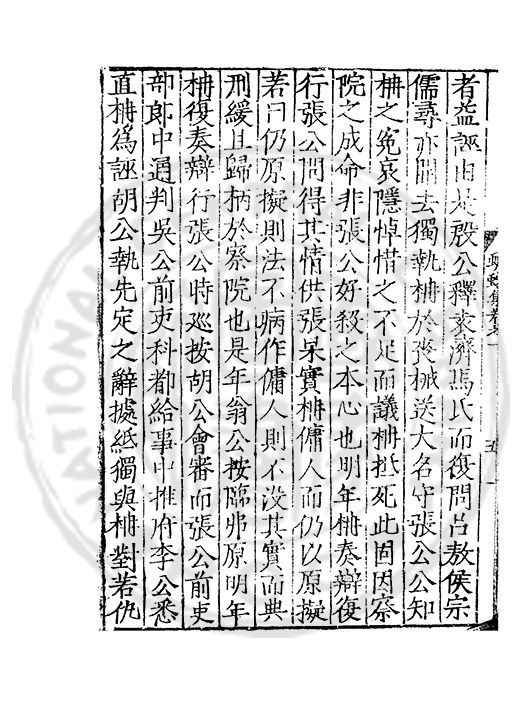 者益誣由是殷公釋裘濟馬氏而復問呂敖侯宗
儒尋亦開去獨執柟於喪械送大名守張公公知
柟之冤哀隱悼惜之不足而議柟抵死此固因察
院之成命非張公好殺之本心也明年柟奏辯復
行張公問得其情供張杲實柟傭人而仍以原擬
若曰仍原擬則法不病作傭人則不没其實而典
刑緩且歸柄於察院也是年翁公按臨弗原明年
柟復奏辯行張公時廵按胡公會審而張公前吏
部郎中通判吳公前吏科都給事中推府李公悉
直柟為誣胡公執先定之辭據紙獨與柟對若仇
蠛蠓集卷之一
五